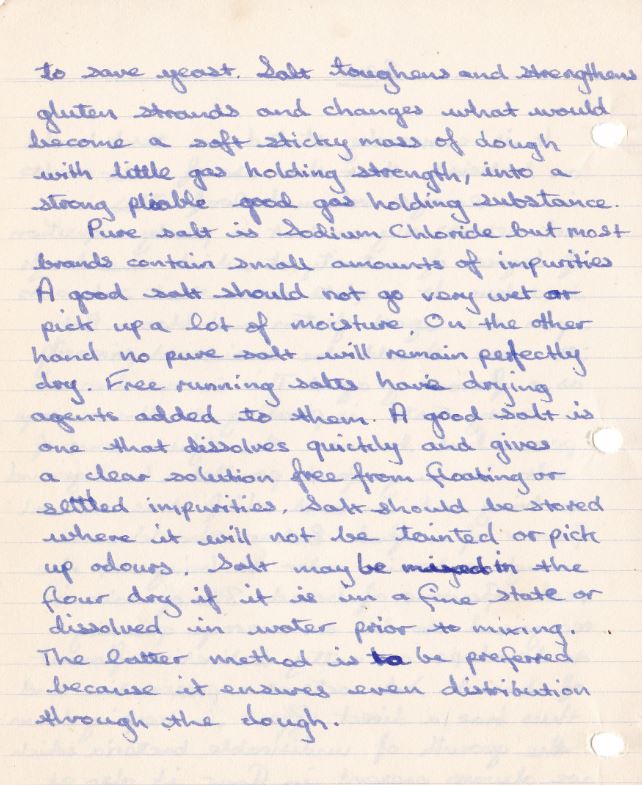 to save yeast. Salt toughens and strengthens
gluten strands and changes what would
become a soft sticky mass of dough
with little gas holding strength, into a
strong pliable good gas holding substance.
Pure salt is Sodium Chloride but most
brands contain small amounts of impurities
A good salt should not go very wet or
pick up a lot of moisture. On the other
hand no pure salt will remain perfectly
dry. Free running salts have drying
agents added to them. A good salt is
one that dissolves quickly and gives
a clear solution free from floating or
settled impurities. Salt should be stored
where it will not be tainted or pick
up odours. Salt may be mixed in the
flour dry if it is in a fine state or
dissolved in water prior to mixing.
The latter method is to be preferred
because it ensures even distribution
through the dough.